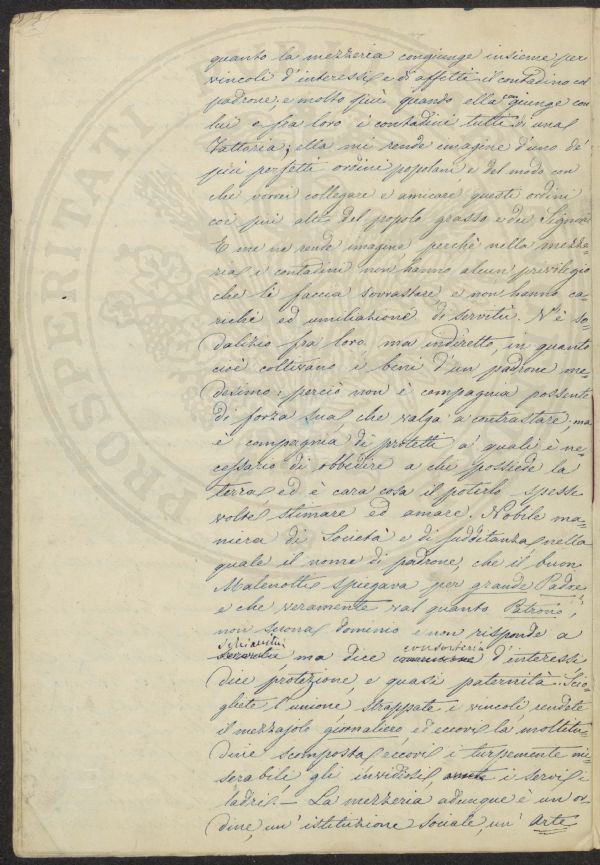 quanto la mezzeria congiunge insieme per
vincoli d'interessi e di affetti il contadino col
padrone; e molto più quando ella congiunge con
lui e fra loro i contadini tutti di una
Fattoria; ella mi rende imagine d'uno de'
più perfetti ordini popolani e del modo con
che vorrei collegare e amicare questi ordini
coi più alti del popolo grasso e dei Signori
E me ne rende imagine, perchè nella mezze=
ria i contadini non hanno alcun privilegio
che li faccia sovrastare, e non hanno ca=
riche ed umiliazione di servitù. V'è So=
dalizio fra loro ma indiretto, in quanto
cioè coltivano i beni d'un padrone me=
desimo: perciò non è compagnia possente
di forza sua che valga a contrastare; ma
è compagnia di protetti a' quali è ne=
cessario di obbedire a chi possiede la
terra ed è cara cosa il poterlo spesse
volte stimare ed amare. Nobile ma=
niera di Società e di sudditanza nella
quale il nome di padrone, che il buon
Malenotti spiegava per grande Padre
e che veramente val quanto Patrono,
non suona dominio e non risponde a
Schiavitù ma dice consorteria d'interessi
dice protezione e quasi paternità. Scio=
gliete l'unione, strappate i vincoli, rendete
il mezzajolo giornaliero, ed eccovi la moltitu=
dine scomposta eccovi i turpemente mi=
serabili gli invidiosi, i servi i
ladri. — La mezzeria adunque è un or=
dine, un' istituzione sociale, un' Arte
PROSPERITATI